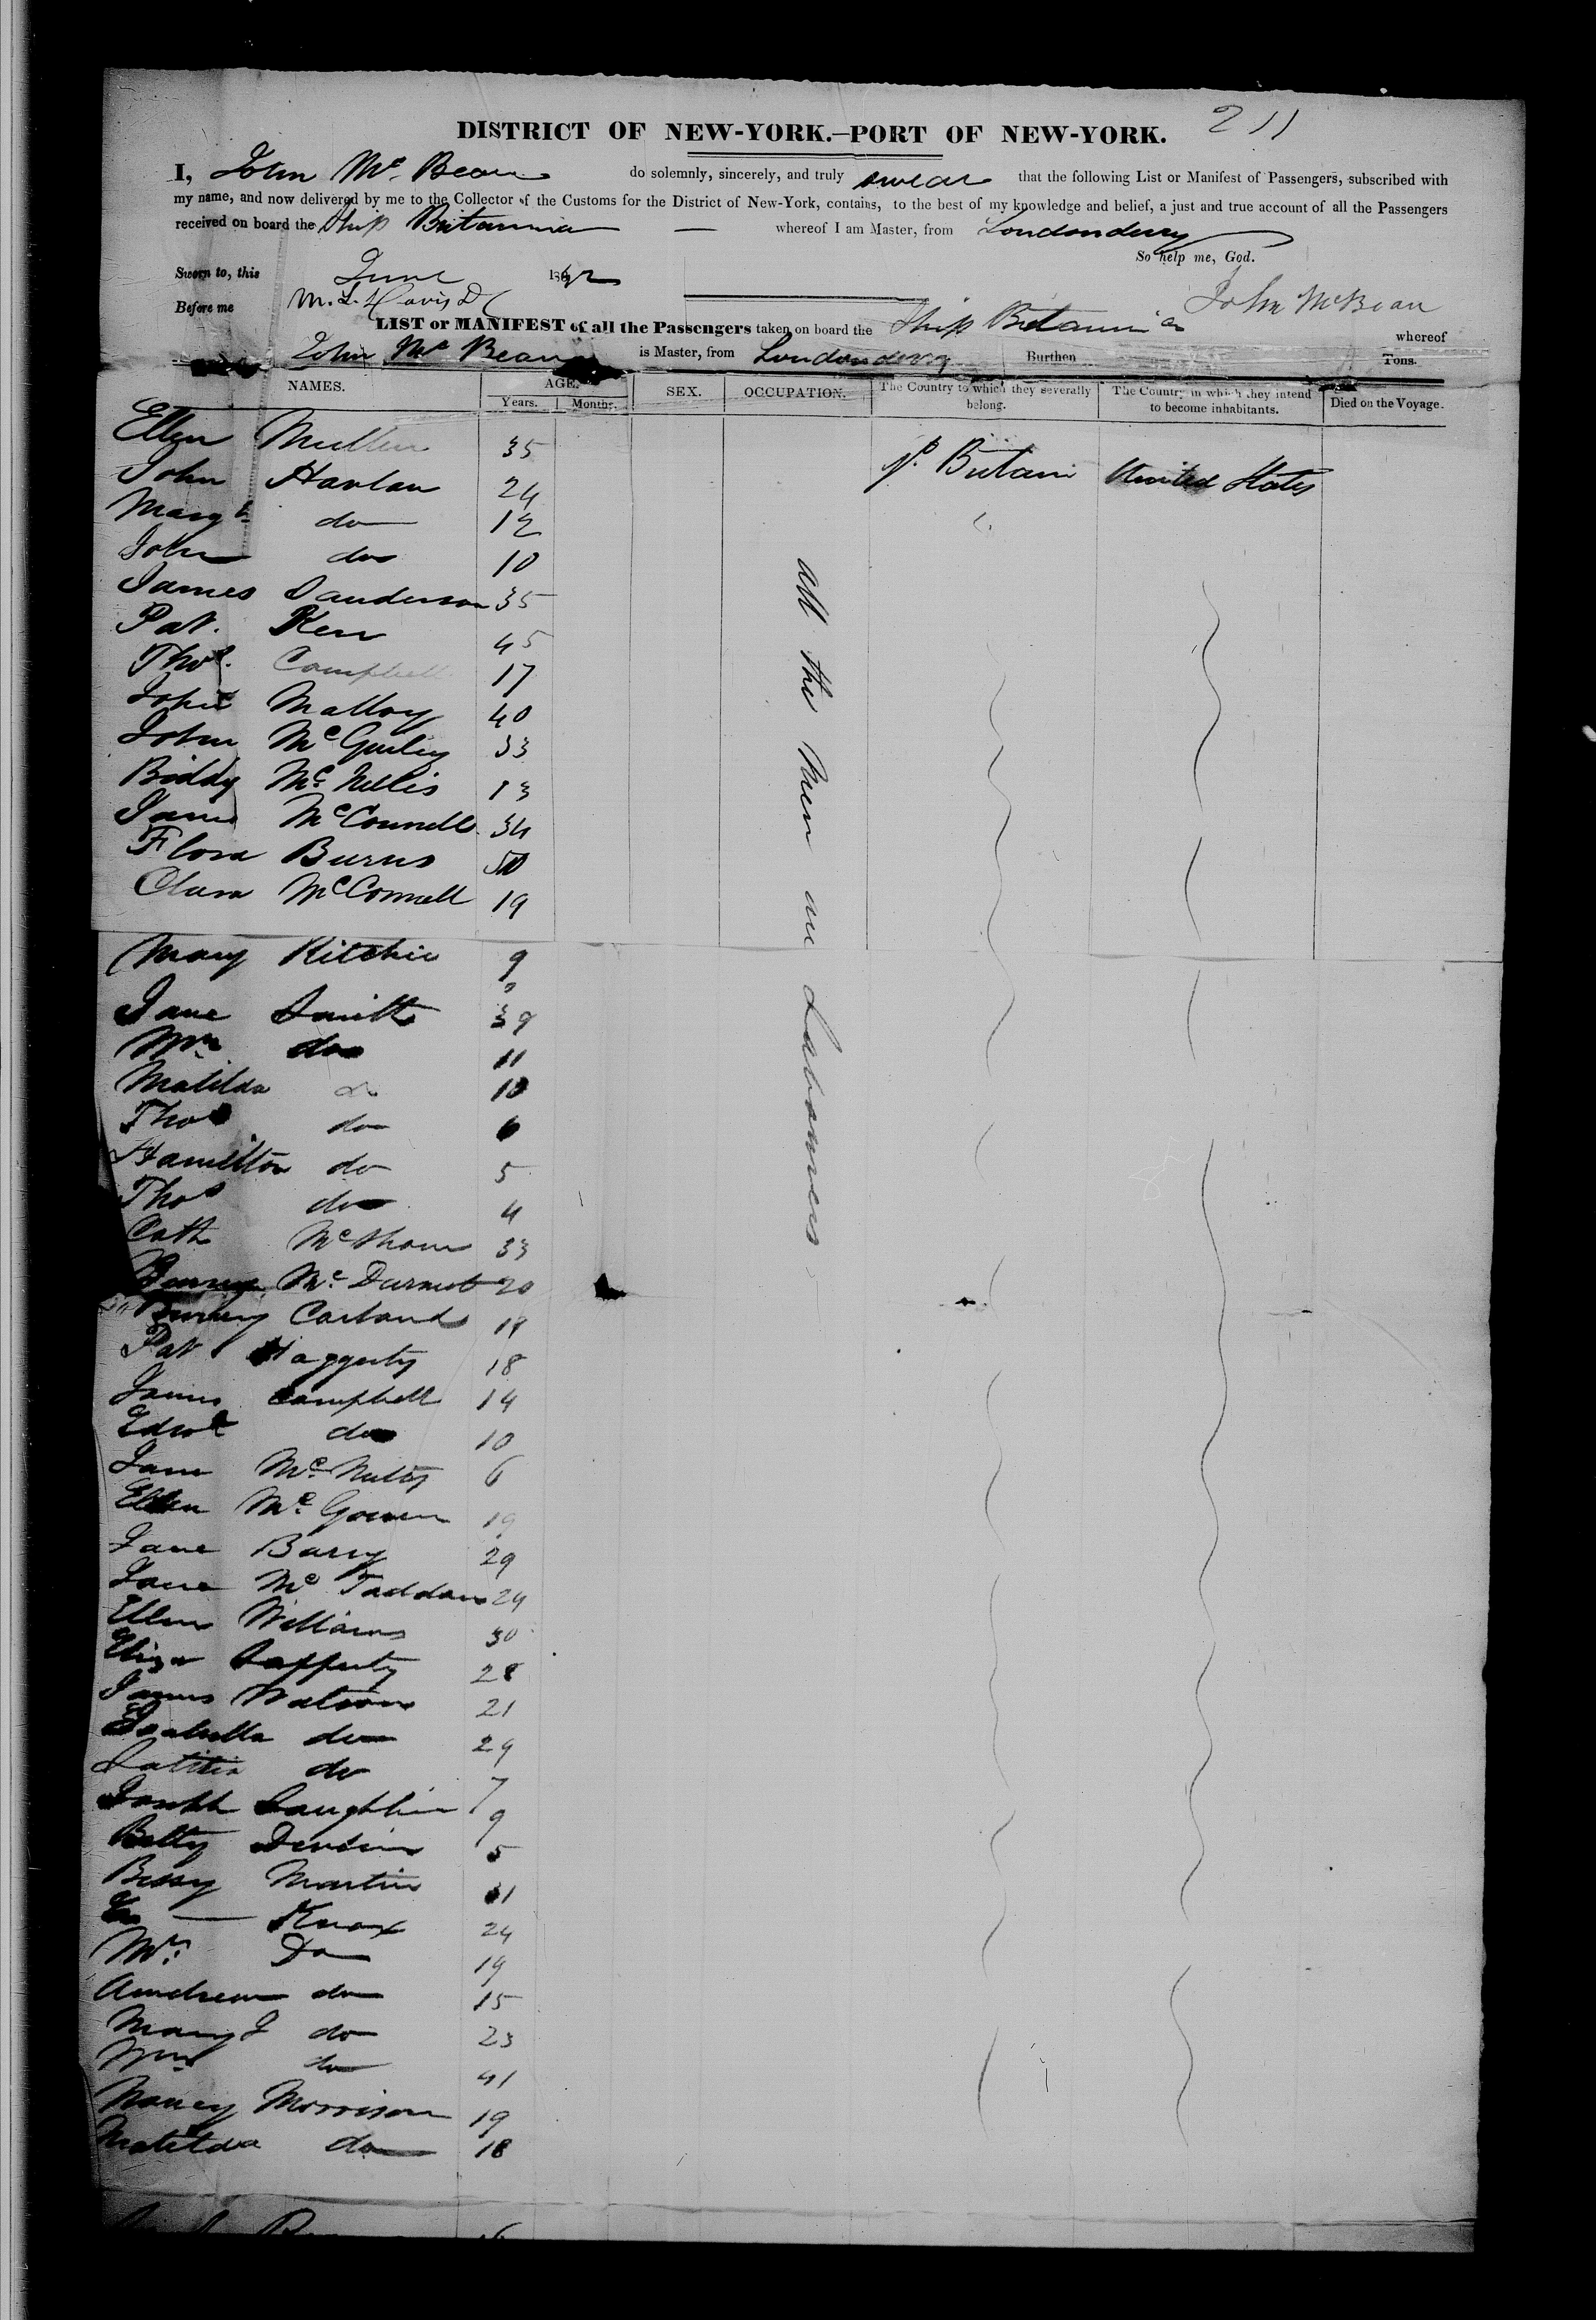 211
DISTRICT OF NEW-YORK.—PORT OF NEW-YORK.
I, John Mc. Bean do solemnly, sincerely, and truly swear that the following List or Manifest of Passengers, subscribed with
my name, and now delivered by me to the Collector of the Customs for the District of New-York, contains, to the best of my knowledge and belief, a just and true account of all the Passengers
received on board the Ship Britannia — whereof I am Master, from Londonderry
So help me, God.
Sworn to, this June 1842
John McBean
Before me M. L. Davis
LIST or MANIFEST of all the Passengers taken on board the Ship Britannia whereof
John Mc Bean is Master, from Londonderry Burthen Tons.
NAMES. AGE. Years. Months. SEX. OCCUPATION. The Country to which they severally belong. The Country in which they intend to become inhabitants. Died on the Voyage.
Ellen Mullen 35
John Harlan 24 Britain United States
Margt do 12
John do 10
James Sanderson 35
Pat. Kerr 45
Thos. Campbell 17
John Malloy 40
John 33
Biddy Mc. Nellis 13
McConnell 34
Flora Burns 50
McConnell 19
Mary Ritchie 9
Jane Smith 39
Wm do 11
Matilda do 10
Thos do 6
Hamilton do 5
Thos do 4
Cath 33
Mc. Darmot 20
Carland 19
Pat Haggerty 18
James Campbell 14
Edwd do 10
Jane Mc. Nulty 6
Ellen Mc. Gowen 19
Jane Barry 29
Jane Mc Faddan 24
Ellen Williams 30
Eliza Lafferty 28
James Watson 21
Isabella do 29
Latitia do 7
Laughlin 9
Betty Devlin 5
Bessy Martin 31
— Knox 24
Do 19
Andrew do 15
Mary J do 23
Wm do 41
Nancy Morrison 19
Matilda do 18
all the Men are Labourers